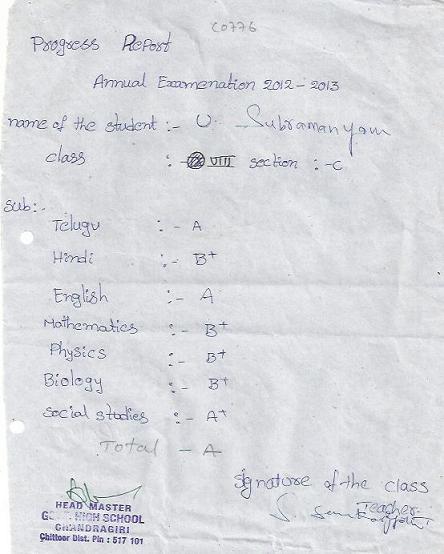 C0776
Progress Report
Annual Examenation 2012-2013
name of the student :- U. Subramanyam
class :- VIII section :- C
Sub:-
Telugu :- A
Hindi :- B+
English :- A
Mathematics :- B+
Physics :- B+
Biology :- B+
Social studies :- A+
Total - A
Signature of the class
Teacher.
HEAD MASTER
GOVT. HIGH SCHOOL
CHANDRAGIRI
Chittoor Dist. Pin : 517 101